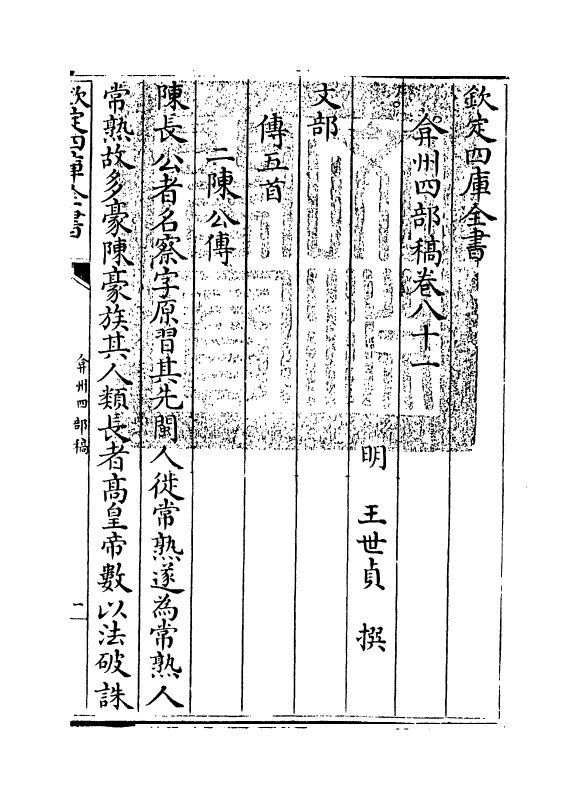 欽定四庫全書
弇州四部稿卷八十一
明 王世貞 撰
文部
傳五首
二陳公傳
陳長公者名察字原習其先閩人徙常熟遂為常熟人
常熟故多豪陳豪族其人類長者高皇帝數以法破誅
欽定四庫全書
弇州四部稿